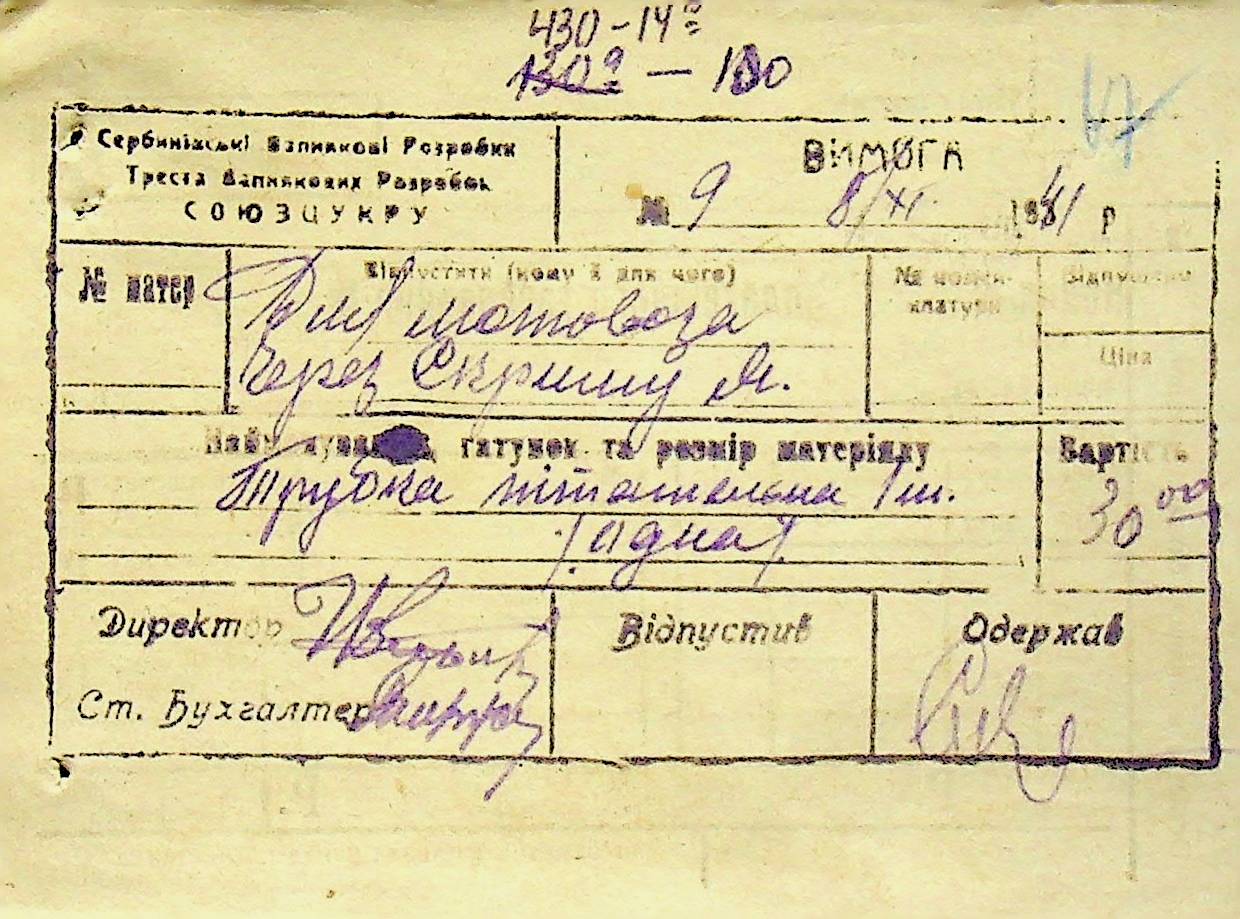 430 - 14 а
130 а — 100
67
Сербинівські Вапнякові Розробки
Треста Вапнякових Розробок
СОЮЗЦУКРУ
ВИМОГА
№ 9 8/XI. 1941 р
№ матер
Відпустити (кому і для чого)
№ номен-
клатури
Відпущено
Ціна
Для мотовоза
через Скришу Я.
Найменування, гатунок та розмір матеріялу
Вартість
Трубка питательна 1 ш.
(одна)
30 00
Директор
Відпустив
Одержав
Ст. Бухгалтер